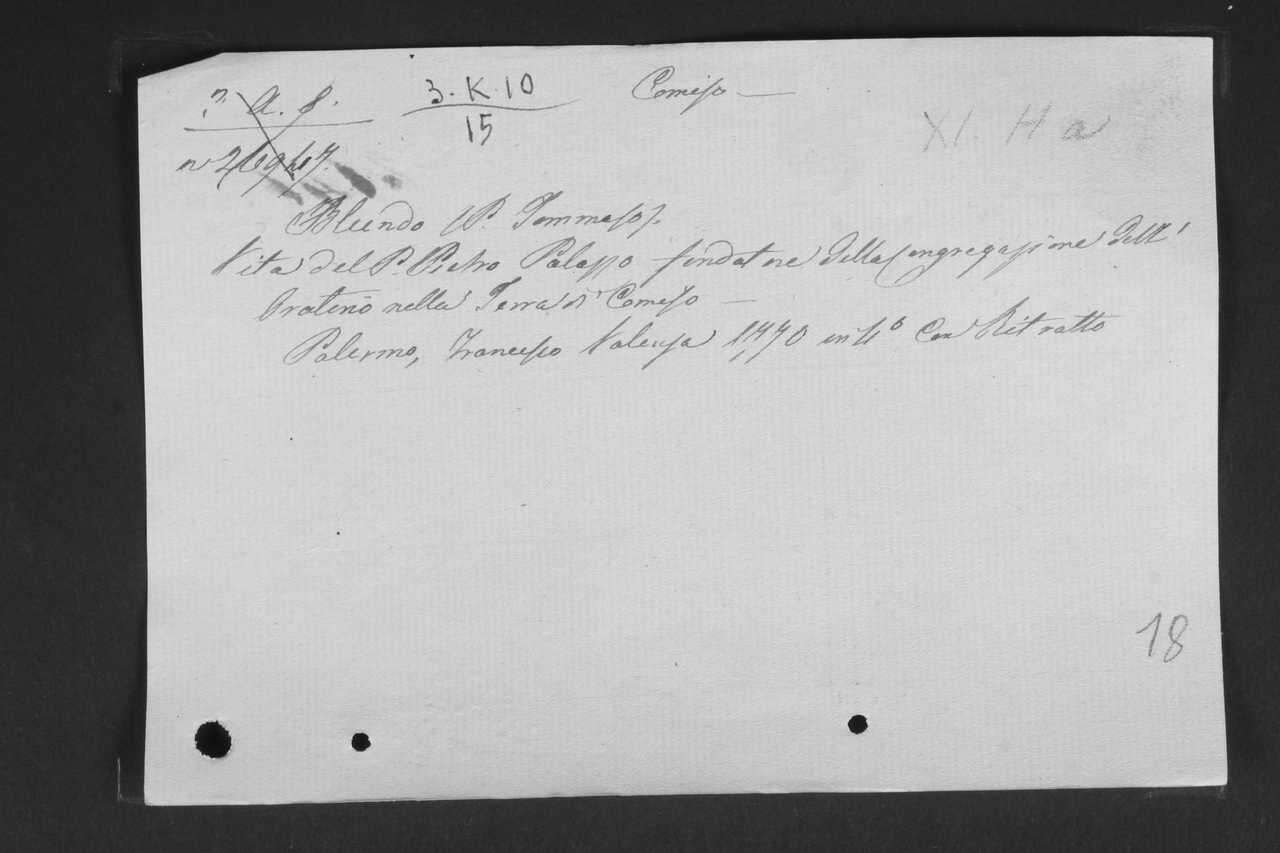 3. K. 10 Comiso —
15
XI. H a
Blundo (P. Tommaso).
Vita del P. Pietro Palazzo fondatore della Congregazione dell'
Oratorio nella Terra di Comiso —
Palermo, Francesco Valenza 1770 in 4° Con Ritratto
18